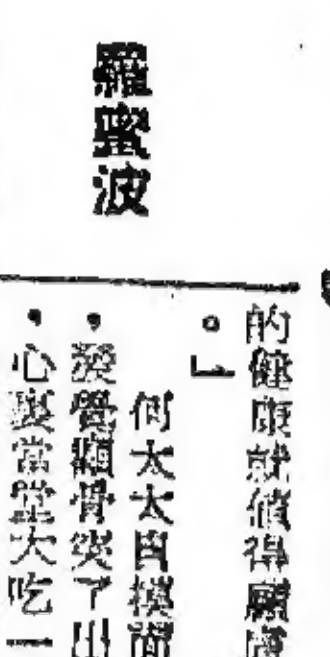 羅蜜波
的健康就值得顧慮
。」
何太太自摸面
，發覺顴骨突了出
，心裏當堂大吃一